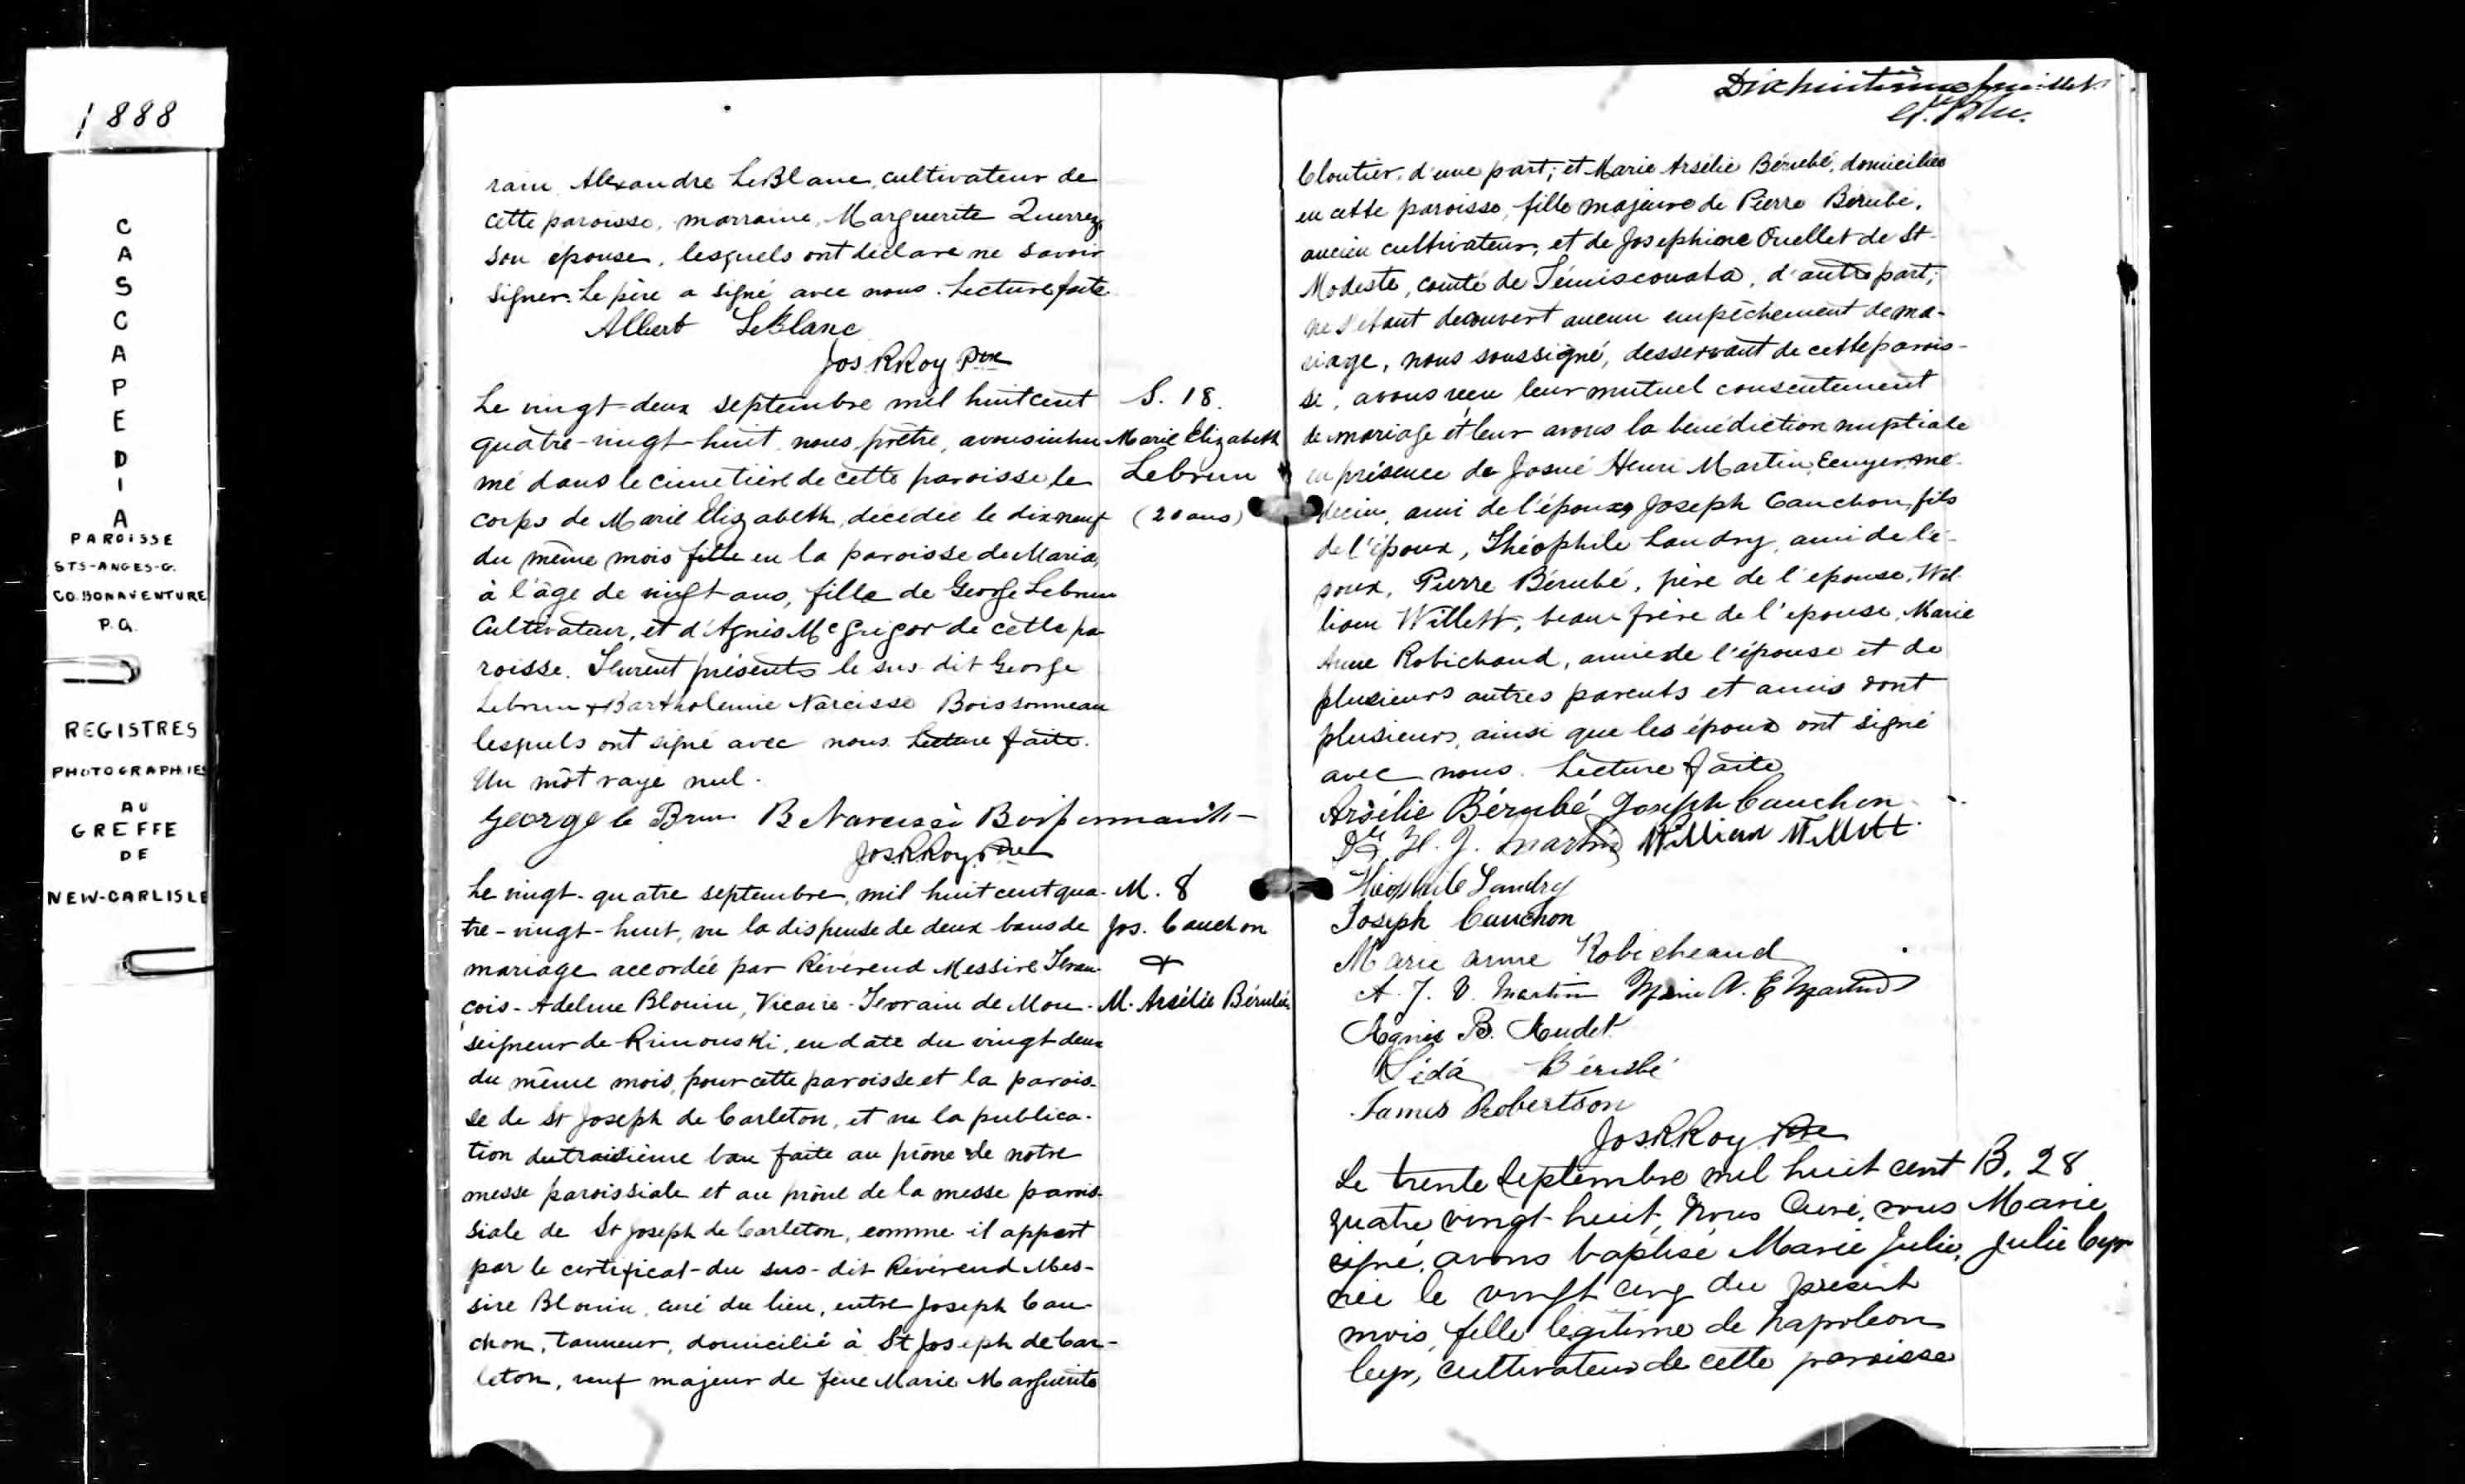 1888
CASCAPEDIA
PAROISSE
STS-ANGES-G.
CO. BONAVENTURE
P.Q.
REGISTRES
PHOTOGRAPHIES
AU
GREFFE
DE
NEW-CARLISLE
rain, Alexandre LeBlanc, cultivateur de
cette paroisse, marraine, Marguerite
son épouse, lesquels ont déclaré ne savoir
signer. Le père a signé avec nous. Lecture faite
Albert LeBlanc
Jos RRoy Ptre
Le vingt-deux septembre mil huit cent
quatre-vingt-huit, nous, prêtre, avons inhu
mé dans le cimetière de cette paroisse, le
corps de Marie Elizabeth, décédée le dix neuf
du même mois fille en la paroisse de Maria,
à l'âge de vingt ans, fille de George Lebrun
Cultivateur, et d'Agnès McGrigor de cette pa
roisse. Furent présents le sus-dit George
Lebrun & Bartholemie Narcisse Boissonneau
lesquels ont signé avec nous. Lecture faite.
Un mot rayé nul.
George le Brun B Narcisse
Jos RRoy Ptre
S. 18.
Marie Elizabeth
Lebrun
(20 ans)
Le vingt-quatre septembre, mil huit cent qua-
tre-vingt-huit, vu la dispense de deux bans de
mariage accordée par Révérend Messire Fran-
çois-Adelme Blouin, Vicaire-Forain de Mon-
seigneur de Rimouski, en date du vingt deux
du même mois, pour cette paroisse et la parois-
se de St Joseph de Carleton, et vu la publica-
tion du troisième ban faite au prône de notre
messe paroissiale et au prône de la messe parois-
siale de St Joseph de Carleton, comme il appert
par le certificat du sus-dit Révérend Mes-
sire Blouin, curé du lieu, entre Joseph Cau-
chon, tanneur, domicilié à St Joseph de Car-
leton, veuf majeur de feue Marie Marguerite
M. 8
Jos. Cauchon
&
M. Arsélie Bérubé
Dixhuitième feuillet
Cloutier, d'une part; et Marie Arsélie Bérubé, domiciliée
en cette paroisse, fille majeure de Pierre Bérubé,
ancien cultivateur, et de Josephine Ouellet de St-
Modeste, comté de Témiscouata, d'autre part;
ne s'étant découvert aucun empêchement de ma-
riage, nous soussigné, desservant de cette parois-
se, avons reçu leur mutuel consentement
de mariage et leur avons la bénédiction nuptiale
en présence de Josué Henri Martin, Ecuyer mé-
decin, ami de l'époux, Joseph Cauchon, fils
de l'époux, Théophile Landry, ami de l'é-
poux, Pierre Bérubé, père de l'épouse, Wil-
liam Willett, beau-frère de l'épouse, Marie
Anne Robichaud, amie de l'épouse et de
plusieurs autres parents et amis dont
plusieurs, ainsi que les époux ont signé
avec nous. Lecture faite
Arsélie Bérubé Joseph Cauchon
Dr H. J. Martin William Willett
Théophile Landry
Joseph Cauchon
Marie anne Robicheaud
A. J. V. Martin Marie A. E Martin
Agnès B. Audet
Léda Bérubé
James Robertson
Jos RRoy Ptre
Le trente Septembre mil huit cent
quatre vingt-huit, Nous Curé, sous
signé, avons baptisé Marie Julie,
née le vingt cinq du présent
mois, fille légitime de Napoléon
Cyr, cultivateur de cette paroisse
B. 28
Marie
Julie Cyr